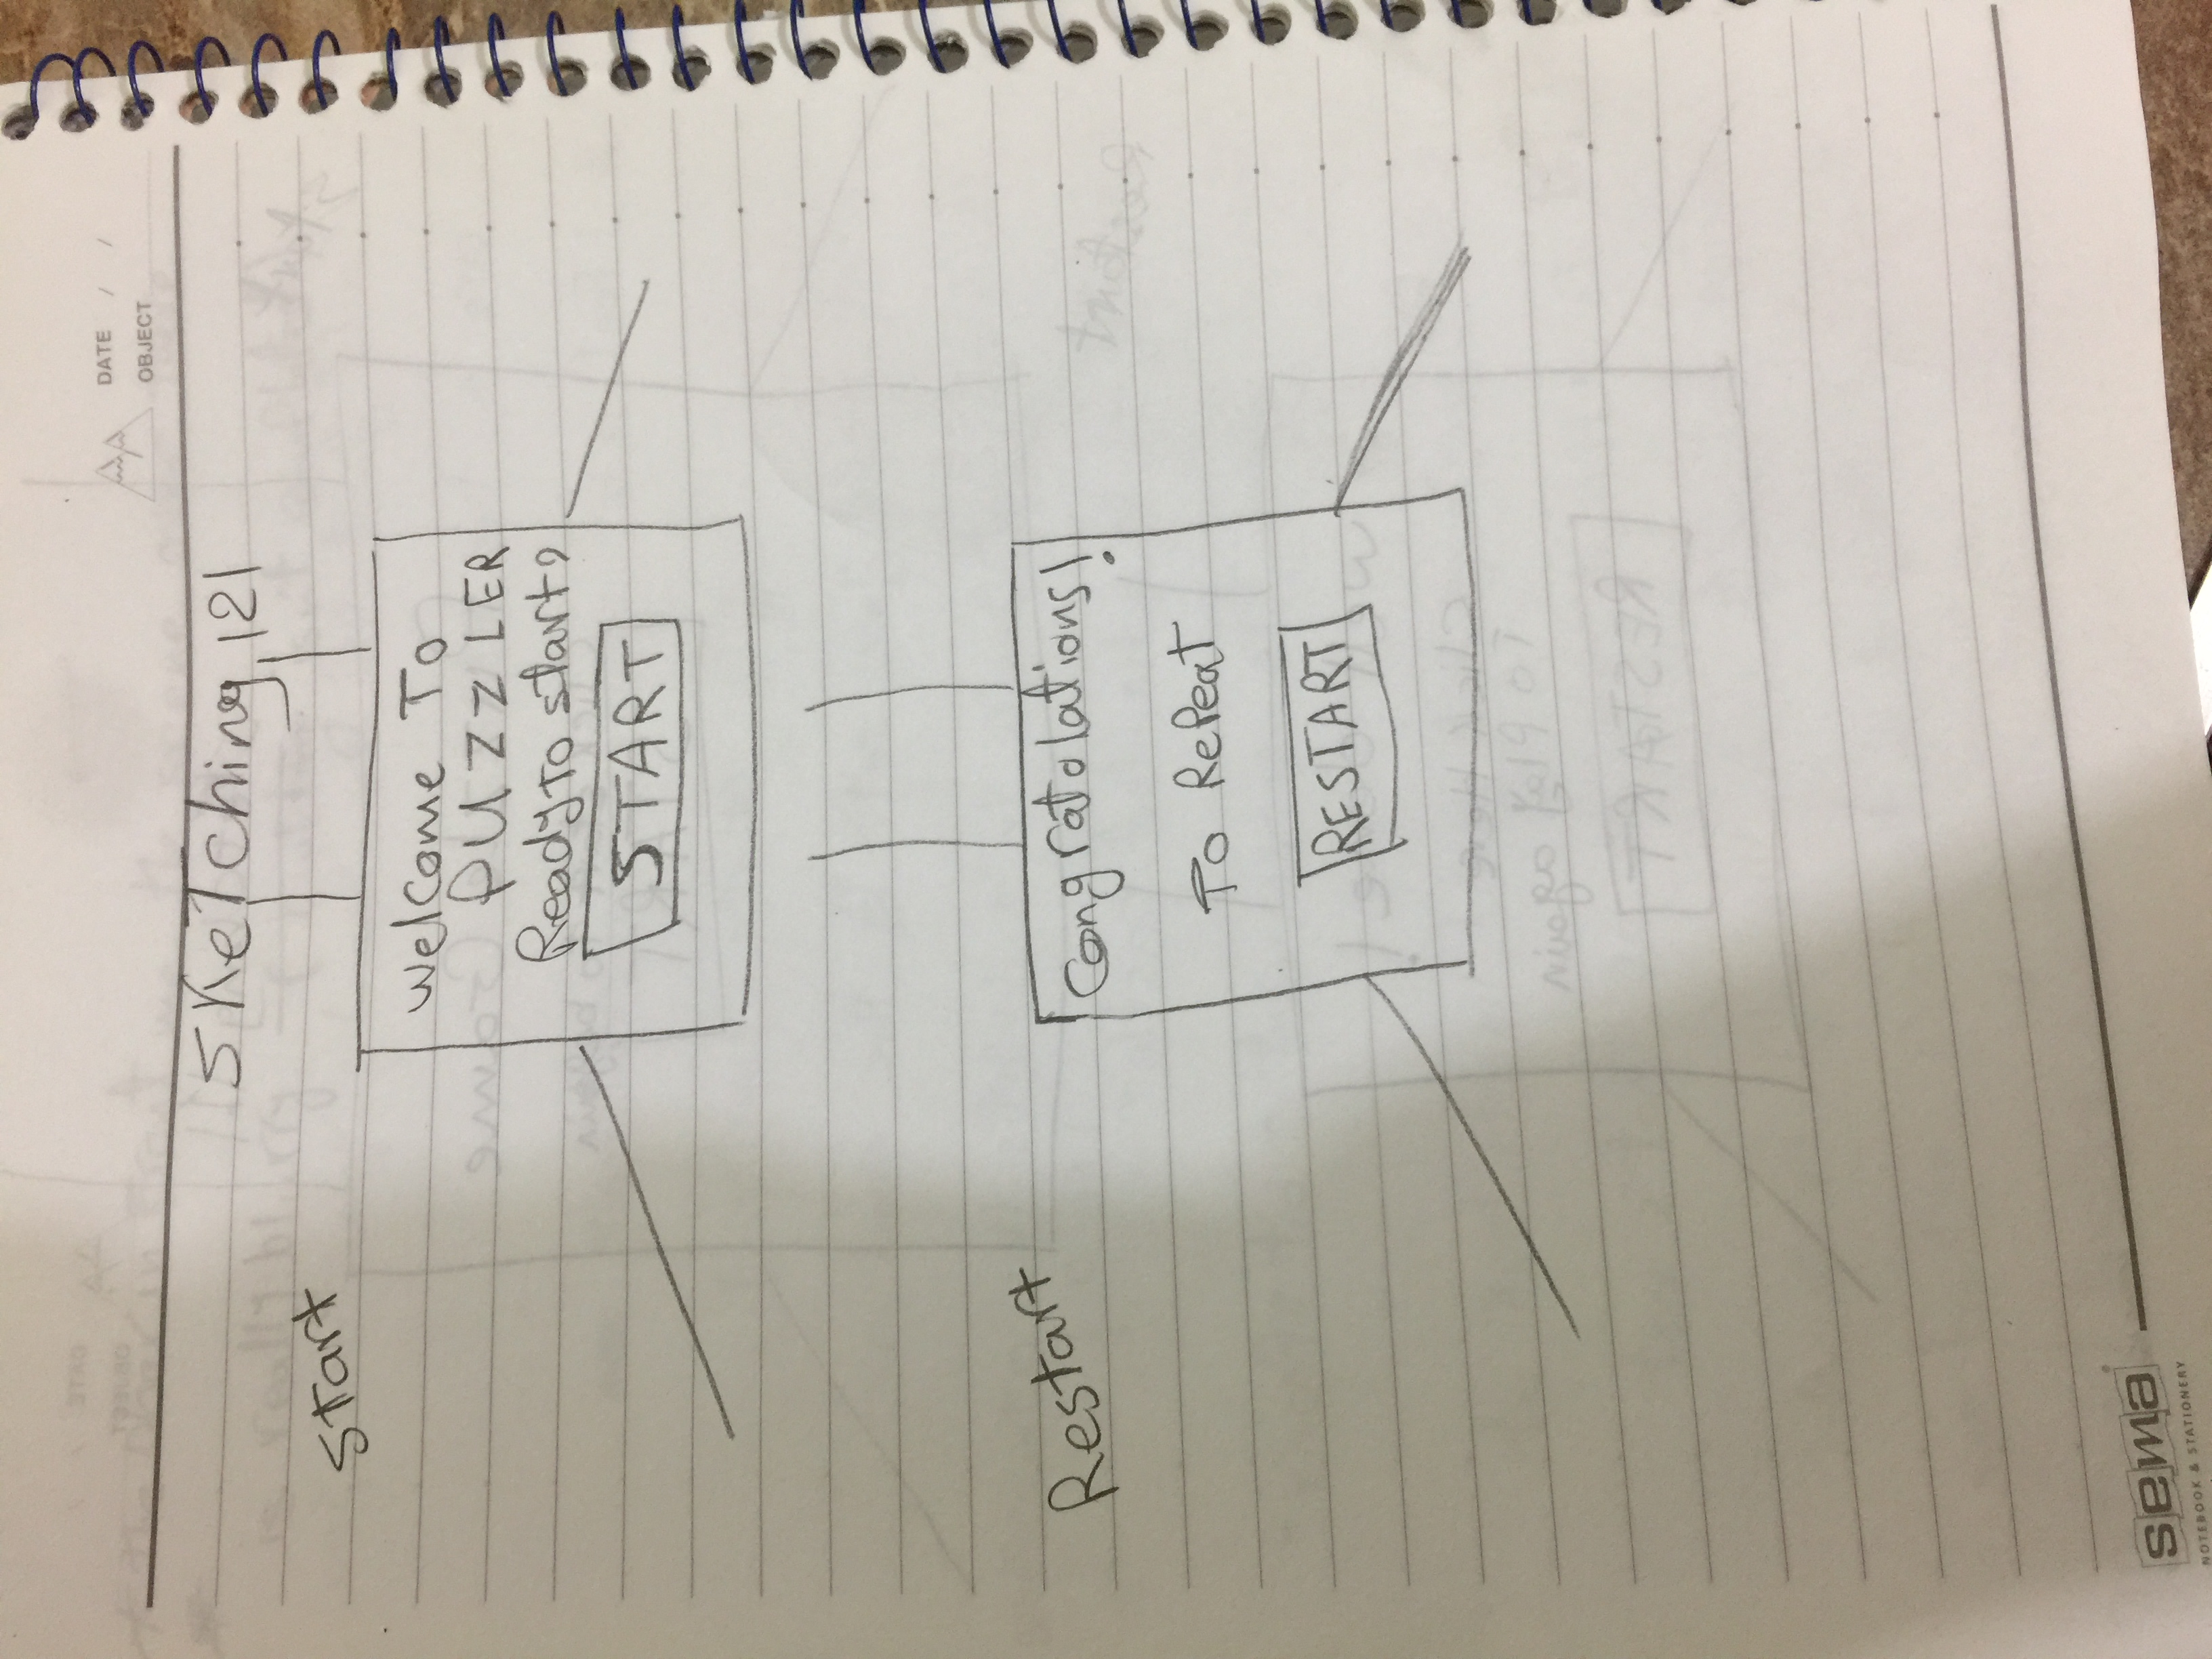 DATE / /
OBJECT
Sketching 121
Start
Welcome To
PUZZLER
Ready To start?
START
Restart
Congratolations!
To Repeat
RESTART
sema
NOTEBOOK & STATIONERY